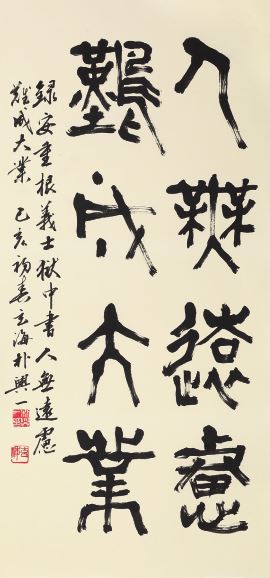 人無遠慮
難成大業
錄安重根義士獄中書人無遠慮
難成大業 己亥初春玄海朴興一